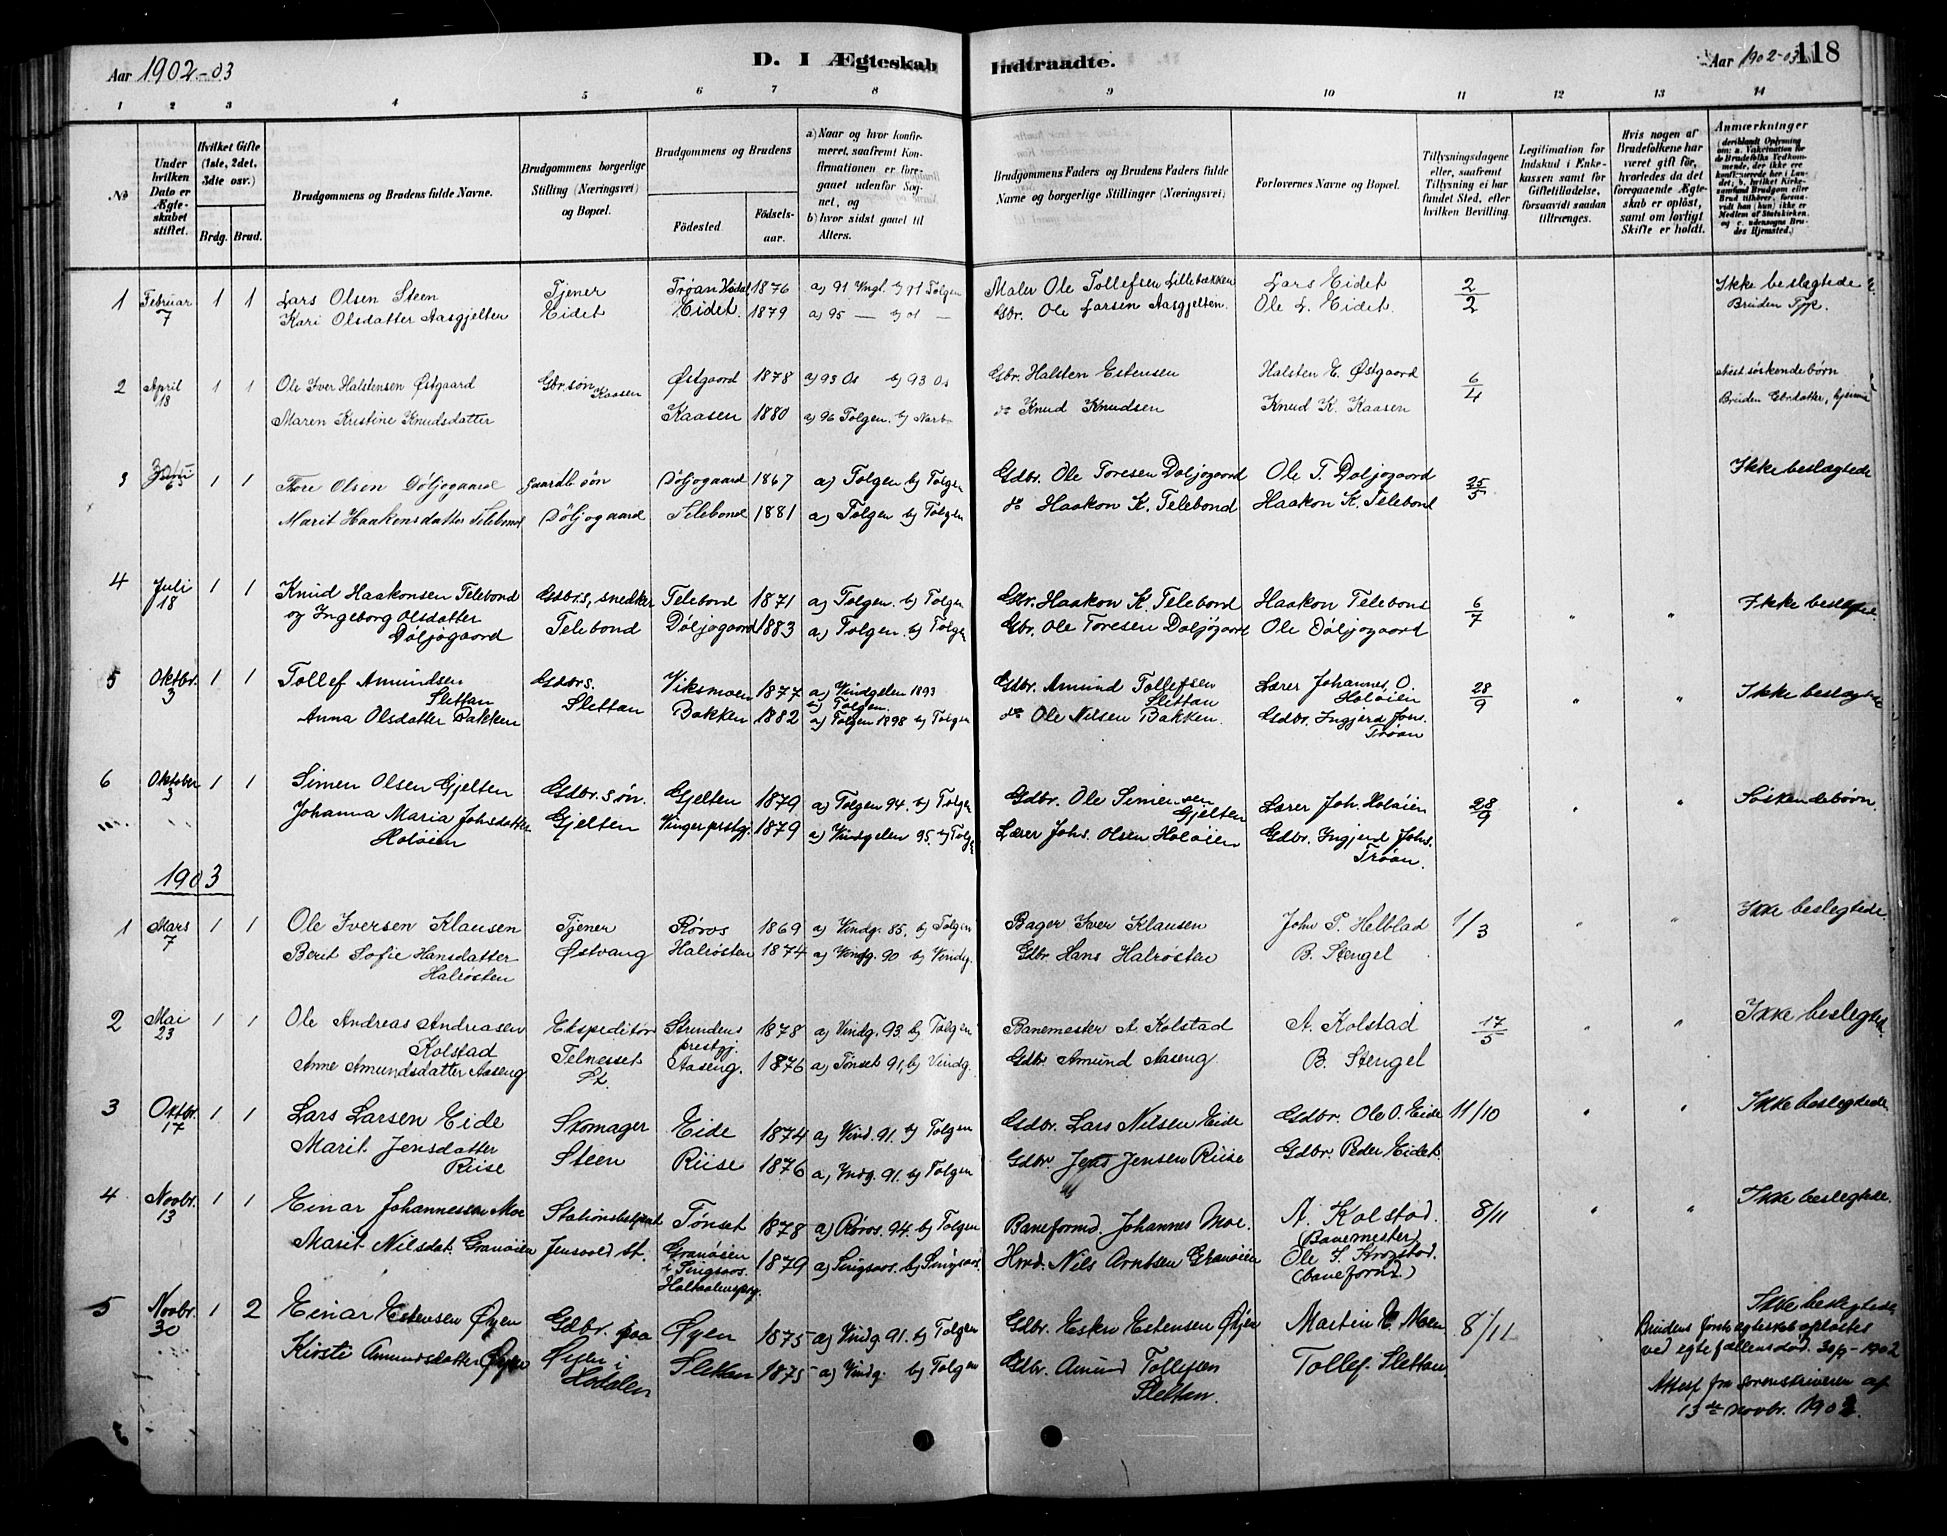 Aar 1902-03
D. I Ægteskab Indtraadte.
Aar 1902-03 118
1 2 3 4 5 6 7 8 9 10 11 12 13 14
No
Under hvilken Dato er Ægteskabet stiftet.
Hvilket Gifte (1ste, 2det, 3die osv.)
Brdg. Brud.
Brudgommens og Brudens fulde Navne.
Brudgommens borgerlige Stilling (Næringsvei) og Bopæl.
Brudgommens og Brudens
Fødested.
Fødselsaar.
a) Naar og hvor konfirmeret, saafremt Konfirmationen er foregaaet udenfor Sognet, og
b) hvor sidst gaaet til Alters.
Brudgommens Faders og Brudens Faders fulde Navne og borgerlige Stillinger (Næringsvei)
Forlovernes Navne og Bopæl.
Tillysningsdagene eller, saafremt Tillysning ei har fundet Sted, efter hvilken Bevilling.
Legitimation for Indskud i Enkekassen samt for Giftetilladelse, forsaavidt saadan tiltrænges.
Hvis nogen af Brudefolkene har været gift før, hvorledes da det foregaaende Ægteskab er opløst, samt om lovligt Skifte er holdt.
Anmærkninger
1 Februar 7 1 1 Lars Olsen Steen Tjener Trøan Hodal 1876 a) 91 Vingl. b) 91 Tolgen Maler Ole Tollefsen Lillebækken Lars Eidet 2/2 Ikke beslægtede
Kari Olsdatter Aasgjelten Eidet Eidet. 1879 a) 95 — b) 01 — Gbr. Ole Larsen Aasgjelten. Ole L. Eidet. Bruden Tjge.
2 April 18 1 1 Ole Iver Halstensen Østgaard Gbr. søn Kaasen Østgaard 1878 a) 93 Os b) 93 Os Gbr. Halsten Estensen Halsten E. Østgaard 6/4 Næstsøskendebørn
Maren Kristine Knudsdatter Kaasen 1880 a) 96 Tolgen. b) Narb. do Knud Knudsen Knud K. Kaasen Bruden Gbrdatter, hjemme
3 1 1 Thore Olsen Døljogaard Gaardb søn Døljogaard 1867 a) Tolgen b) Tolgen Gdbr. Ole Toresen Doljogaard Ole T. Doljogaard 25/5 Ikke beslægtede
Marit Haakensdatter Telebond Døljogaard Telebond 1881 a) Tolgen b) Tolgen do Haakon K. Telebond Haakon K. Telebond
4 Juli 18 1 1 Knud Haakonsen Telebond Gdbr.s, snedker Telebond 1871 a) Tolgen. b) Tolgen Gbr. Haakon K. Telebond Haakon Telebond 6/7 " " Ikke beslægtede
og Ingeborg Olsdatter Døljogaard Telebond Døljogaard 1883 a) Tolgen. b) Tolgen Gbr. Ole Toresen Doljogaard Ole Døljogaard
5 Oktbr. 3 1 1 Tollef Amundsen Slettan Gdbrs. Slettan Viksmoen 1877 a) Vindgelen 1893 b) Tolgen. Gdbr. Amund Tollefsen Slettan Lærer Johannes O. Holøien 28/9 " " Ikke beslægtede
Anna Olsdatter Bakken Bakken 1882 a) Tolgen 1898 b) Tolgen do Ole Nilsen Bakken. Gdbr. Ingjerd Johs. Trøan
6 Oktober 3 1 1 Simen Olsen Gjelten Gdbr. søn. Gjelten 1879 a) Tolgen 94. b) Tolgen Gdbr. Ole Simensen Gjelten Lærer Joh. Holøien 28/9 " " Søskendebørn
Johanna Maria Johsdatter Holøien Gjelten Vinger prstgj. 1879 a) Vindgelen 95. b) Tolge Lærer Johs. Olsen Holøien Gdbr. Ingjerd Johs. Trøan.
1903
1 Mars 7 1 1 Ole Iversen Klausen Tjener Røros 1869 a) Vindg. 85, b) Tolgen Bager Iver Klausen John P. Helblad 1/3 " " Ikke beslegtede
Berit Sofie Hansdatter Halrøsten Østvang Halrøsten 1874 a) Vindg. 90 b) Vindg. Gdbr. Hans Halrøsten B. Stengel
2 Mai 23 1 1 Ole Andreas Andreasen Kolstad Ekspeditør Strindens prestgj. 1878 a) Vindg. 93. b) Tolgen Banemester A. Kolstad A. Kolstad 17/5 " " Ikke beslegtede
Anne Amundsdatter Aaseng Telnesset St. Aaseng. 1876 a) Tønset 91, b) Vindg. Gdbr. Amund Aaseng B. Stengel
3 Oktbr. 17 1 1 Lars Larsen Eide Skomager Eide 1874 a) Vind. 91. b) Tolgen Gdbr. Lars Nilsen Eide Gdbr. Ole O. Eide 11/10 " " Ikke beslegtede
Marit Jensdatter Riise Steen Riise 1876 a) Vndg. 91. b) Tolgen Gdbr. Jens Jensen Riise Gdbr. Peder Eidet.
4 Novbr. 13 1 1 Einar Johannessen Moe Stationsbetjent Tønset 1878 a) Røros. 94. b) Tolgen Baneformd. Johannes Moe. A. Kolstad. (Banemester) 8/11 " " Ikke beslegtede.
Marit Nilsdat. Granøien Jensvold St. Granøien i Singsaas. Holtaalens prg. 1879 a) Singsaas. b) Singsaas. Hmd. Nils Arntsen Granøien Ole (baneformd.)
5 Novbr. 30 1 2 Einar Estensen Øyen Gdbr. paa Øyen 1875 a) Vindg. 91. b) Tolgen Gdbr. Esten Estensen Øyen Martin E. Moen 8/11 Ikke beslegtede
Kirsti Amundsdatter Øyen Øyen i Hodalen Slettan 1875 a) Vindg. b) Tolgen Gdbr. Amund Tollefsen Slettan. Tollef Slettan.
Brudens første egteskab opløstes ved egtefællens død. 30/9 - 1902
Attest fra sorenskriveren af 13de novbr. 1903.